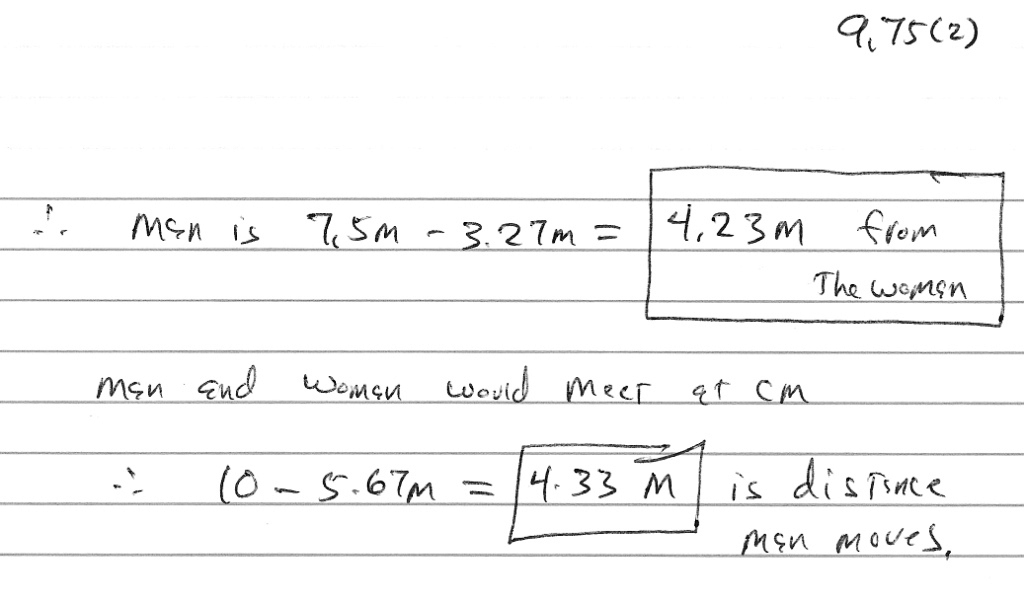 9.75(2)
∴ Man is 7.5m - 3.27m = 4.23m from
The woman
Man and woman would meet at CM
∴ 10 - 5.67m = 4.33 m is distance
man moves.